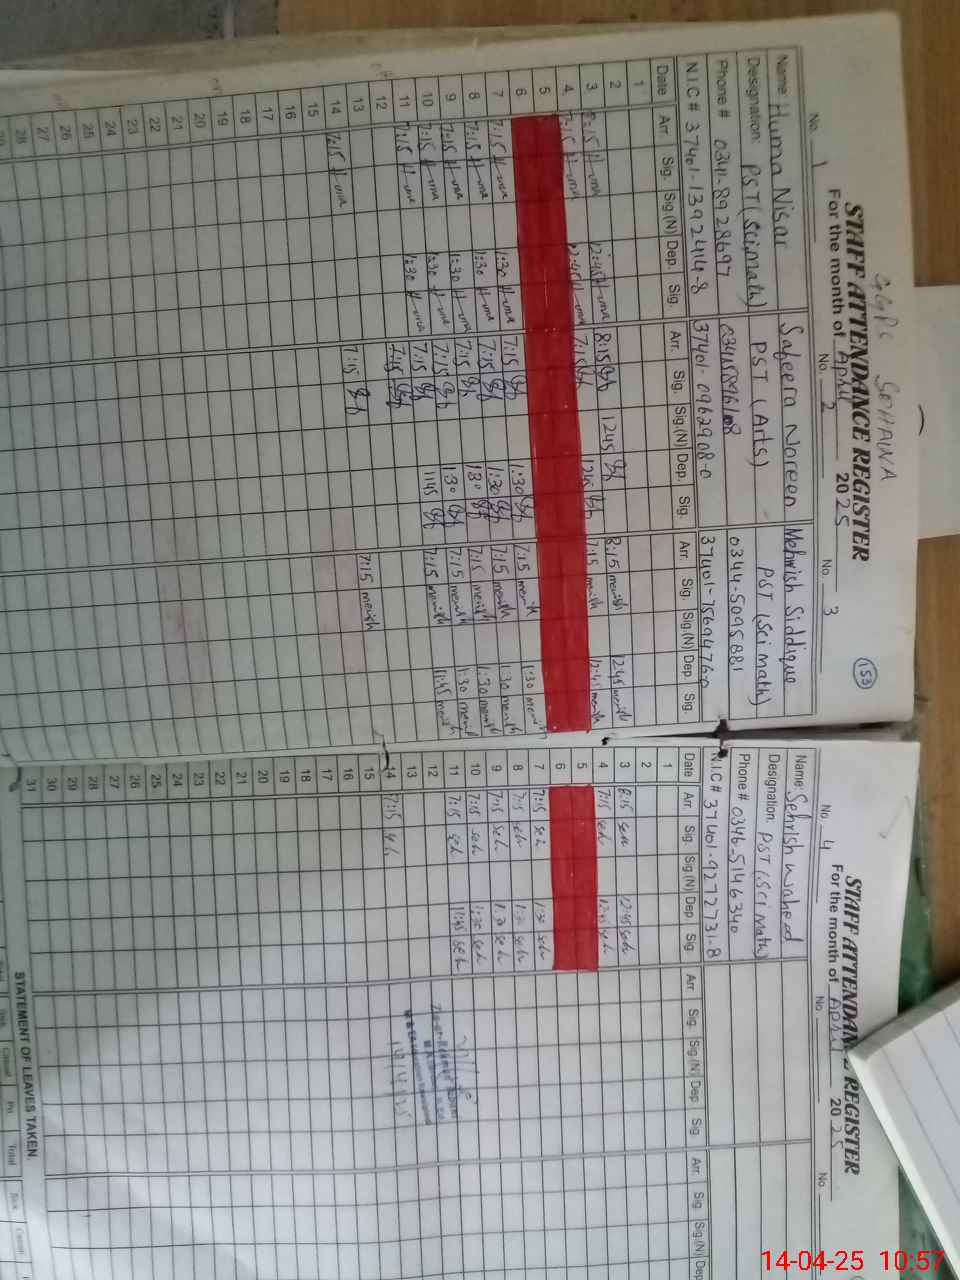 GGPS SOHAINA
STAFF ATTENDANCE REGISTER
For the month of April 2025
153
No. 1 No. 2 No. 3
Name: Huma Nisar Safeera Noreen Mehrish Siddique
Designation: PST (Sci math) PST (Arts) PST (Sci math)
Phone # 0341-8928697 0344-5095881
N.I.C # 37401-1392414-8 37401-0962908-0
Date Arr. Sig. Sig.(N) Dep. Sig. Arr. Sig. Sig.(N) Dep. Sig. Arr. Sig. Sig.(N) Dep Sig.
1
2 8:15 1245 8:15 merish 12:45 merish
3 8:15 Huma 12:45 Huma 7:15 1245 7:15 merish 12:45 merish
4 7:15 Huma 12:45 Huma
5
6 7:15 1:30 7:15 merish 1:30 merish
7 7:15 Huma 1:30 Huma 7:15 1:30 7:15 merish 1:30 merish
8 7:15 Huma 1:30 Huma 7:15 1:30 7:15 merish 1:30 merish
9 7:15 Huma 1:30 Huma 7:15 1:30 7:15 merish 1:30 merish
10 7:15 Huma 1:30 Huma 7:15 1145 7:15 merish 11:45 merish
11 7:15 Huma 1:30 Huma 7:15
12
13 7:15 7:15 merish
14 7:15 Huma
15
16
17
18
19
20
21
22
23
24
25
26
27
28
STAFF ATTENDANCE REGISTER
For the month of April 2025
No. 4 No. No
Name: Sehrish Waheed
Designation: PST (Sci Math)
Phone # 0346-5146340
N.I.C # 37401-9272731-8
Date Arr Sig. Sig.(N) Dep. Sig. Arr Sig. Sig.(N) Dep Sig. Arr. Sig. Sig.(N) Dep
1
2
3 8:15 seh 12:45 seh
4 7:15 seh 12:45 seh
5
6
7 7:15 seh 1:30 seh
8 7:15 seh 1:30 seh
9 7:15 seh 1:30 seh
10 7:15 seh 1:30 seh
11 7:15 seh 11:45 seh
12
13
14 7:15 seh
15
16
17
18
19
20
21
22
23
24
25
26
27
28
29
30
31
STATEMENT OF LEAVES TAKEN.
Total
14-04-25 10:57